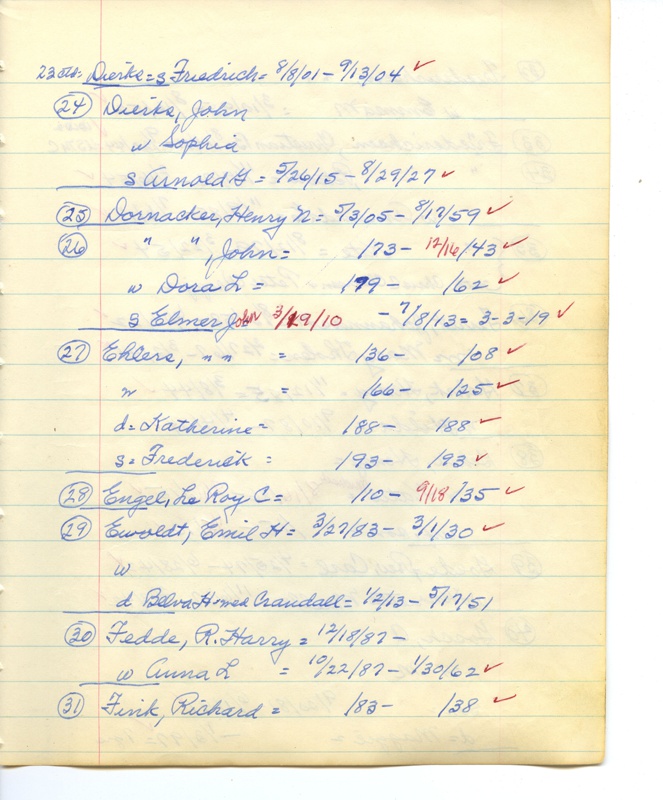 23 Dierks = s Friedrich = 8/8/01 - 9/13/04 ✓
(24) Dierks, John
w Sophia
s Arnold G = 5/26/15 - 8/29/27 ✓
(25) Dornacker, Henry N = 5/3/05 - 8/17/59 ✓
(26) " ", John = /73 - 12/16/43 ✓
w Dora L = /79 - /62 ✓
s Elmer John 3/29/10 - 7/8/13 = 3-3-19 ✓
(27) Ehlers, " " = /36 - /08 ✓
w = /66 - /25 ✓
d = Katherine = /88 - /88 ✓
s = Frederick = /93 - /93 ✓
(28) Engel, Le Roy C = /10 - 9/18/35 ✓
(29) Ewoldt, Emil H = 3/27/83 - 3/1/30 ✓
w
d Belva H = med Crandall = 1/2/13 - 5/17/51
(30) Fedde, R. Harry = 12/18/87 -
w Anna L = 10/22/87 - 1/30/62 ✓
(31) Fink, Richard = /83 - /38 ✓